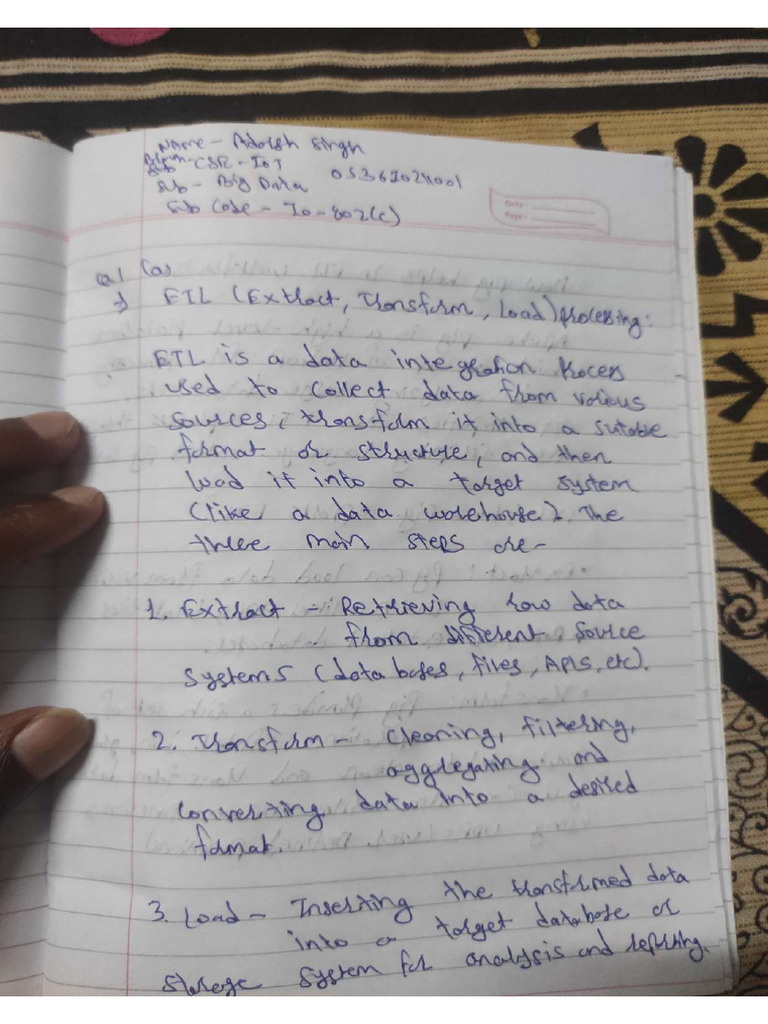 Name - Adarsh Singh
CSE - IOT
Sub - Big Data 0536IO2
Sub Code - IO - 802(c)
Date :
Page :
Q1 (a)
→ ETL (Extract, Transform, Load) processing:
ETL is a data integration Process
used to collect data from various
sources, transform it into a sutable
format or structure, and then
load it into a target system
(like a data warehouse). The
three main steps are-
1. Extract - Retrieving raw data
from different source
systems (databases, files, APIs, etc).
2. Transform - Cleaning, filtering,
aggregating and
converting data into a desired
format.
3. Load - Inserting the transformed data
into a target database or
storage system for analysis and reporting.